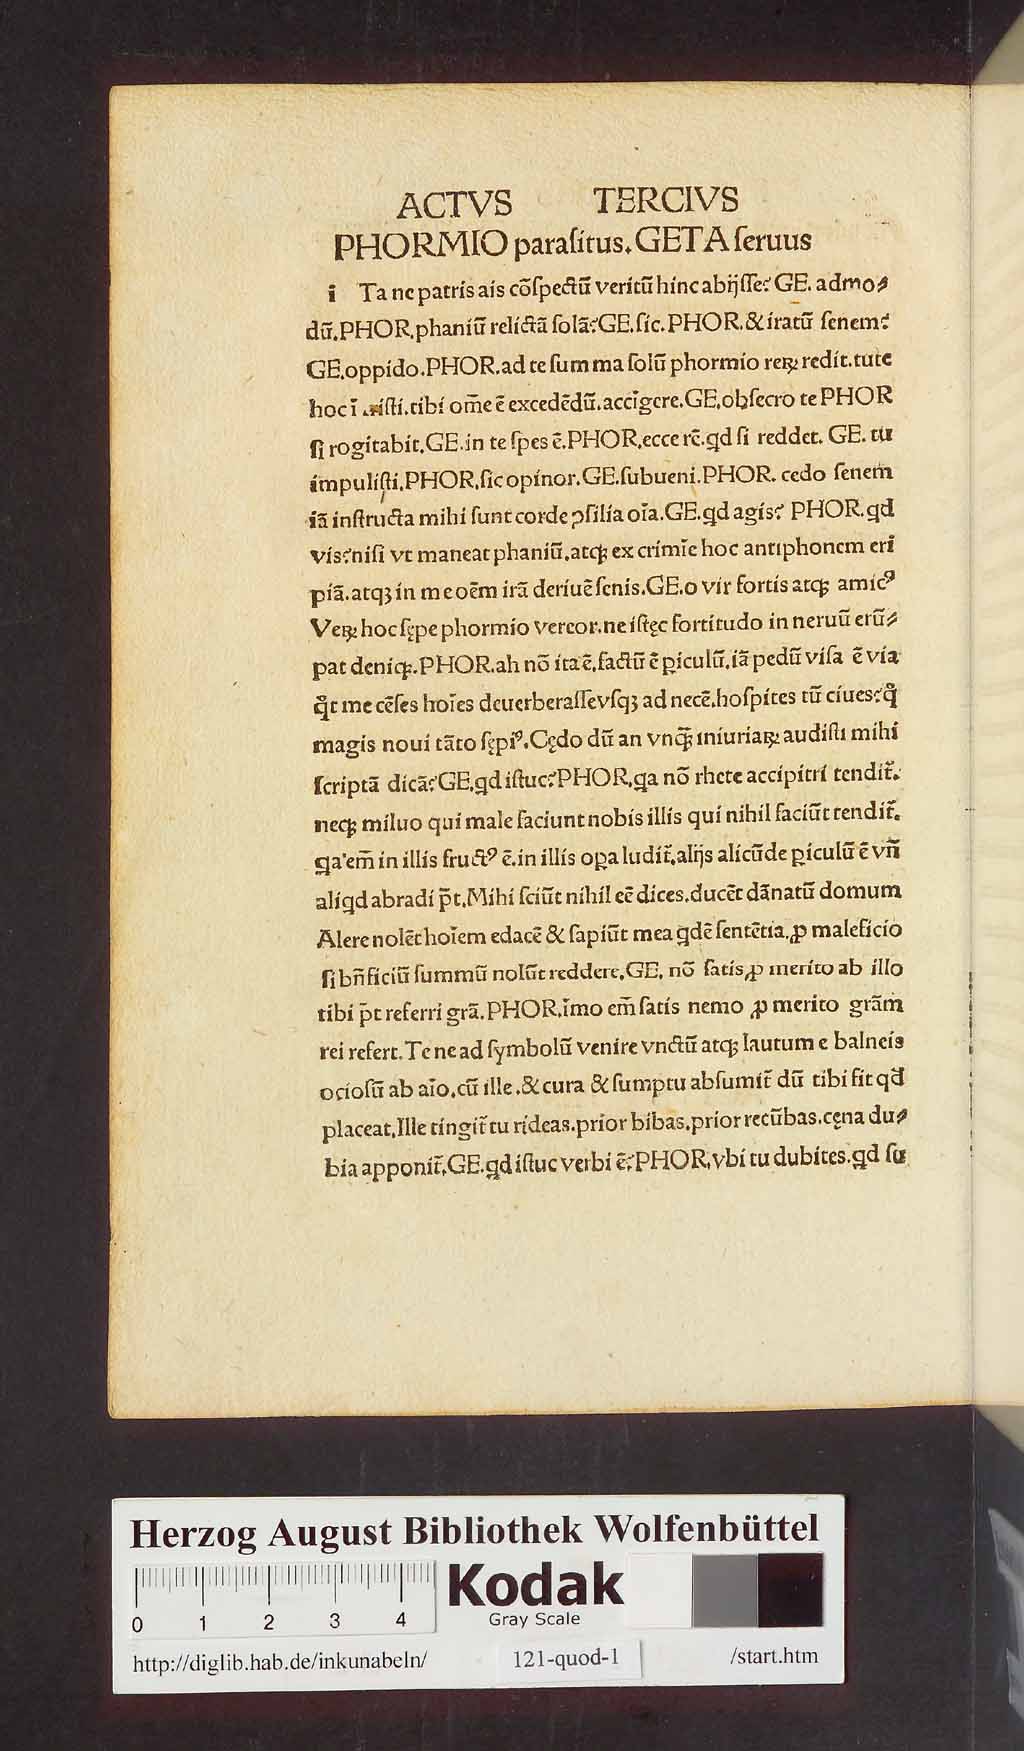 ACTVS TERCIVS
PHORMIO paraſitus. GETA ſeruus
i Ta ne patris ais cōſpectū veritū hinc abijſſe? GE. admo⸗
dū. PHOR. phaniū relictā ſolā? GE. ſic. PHOR. & iratū ſenem?
GE. oppido. PHOR. ad te ſumma ſolū phormio reꝝ redit. tute
hoc ī ſti. tibi om̄e ē excedēdū. accīgere. GE. obſecro te PHOR
ſi rogitabit. GE. in te ſpes ē. PHOR. ecce rē. qd ſi reddet. GE. tu
impuliſti. PHOR. ſic opinor. GE. ſubueni. PHOR. cedo ſenem̄
iā inſtructa mihi ſunt corde ꝯſilia oīa. GE. qd agis? PHOR. qd
vis? niſi vt maneat phaniū. atqꝫ ex crimīe hoc antiphonem eri
piā. atqꝫ in me oēm irā deriuē ſenis. GE. o vir fortis atqꝫ amicꝰ
Veꝝ hoc ſępe phormio vereor. ne iſtęc fortitudo in neruū erū⸗
pat deniqꝫ. PHOR. ah nō ita ē. factū ē ꝑiculū. iā pedū viſa ē via
qͦt me cēſes hoīes deuerberaſſe vſqꝫ ad necē. hoſpites tū ciues? qͦ
magis noui tāto ſępiꝰ. Cędo dū an vnqͣ̄ iniuriaꝝ audiſti mihi
ſcriptā dicā? GE. qd iſtuc? PHOR. qa nō rhete accipitri tendit̄.
neqꝫ miluo qui male faciunt nobis illis qui nihil faciūt tendit̄.
qa em̄ in illis fructꝰ ē. in illis oꝑa ludit̄. alijs alicūde ꝑiculū ē vn̄
aliqd abradi p̄t. Mihi ſciūt nihil eē dices. ducēt dānatū domum
Alere nolēt hoīem edacē & ſapiūt mea qdē ſentētia. ꝓ maleficio
ſi bn̄ficiū ſummū nolūt reddere. GE. nō ſatis ꝓ merito ab illo
tibi p̄t referri grā. PHOR. īmo em̄ ſatis nemo ꝓ merito grām
rei refert. Te ne ad ſymbolū venire vnctū atqꝫ lautum e balneis
ocioſū ab aīo. cū ille. & cura & ſumptu abſumit̄ dū tibi fit qd̄
placeat. Ille ringit̄ tu rideas. prior bibas. prior recūbas. cęna du⸗
bia apponit̄. GE. qd iſtuc verbi ē? PHOR. vbi tu dubites. qd ſu
Herzog August Bibliothek Wolfenbüttel
Kodak
Gray Scale
0 1 2 3 4
http://diglib.hab.de/inkunabeln/ 121-quod-1 /start.htm